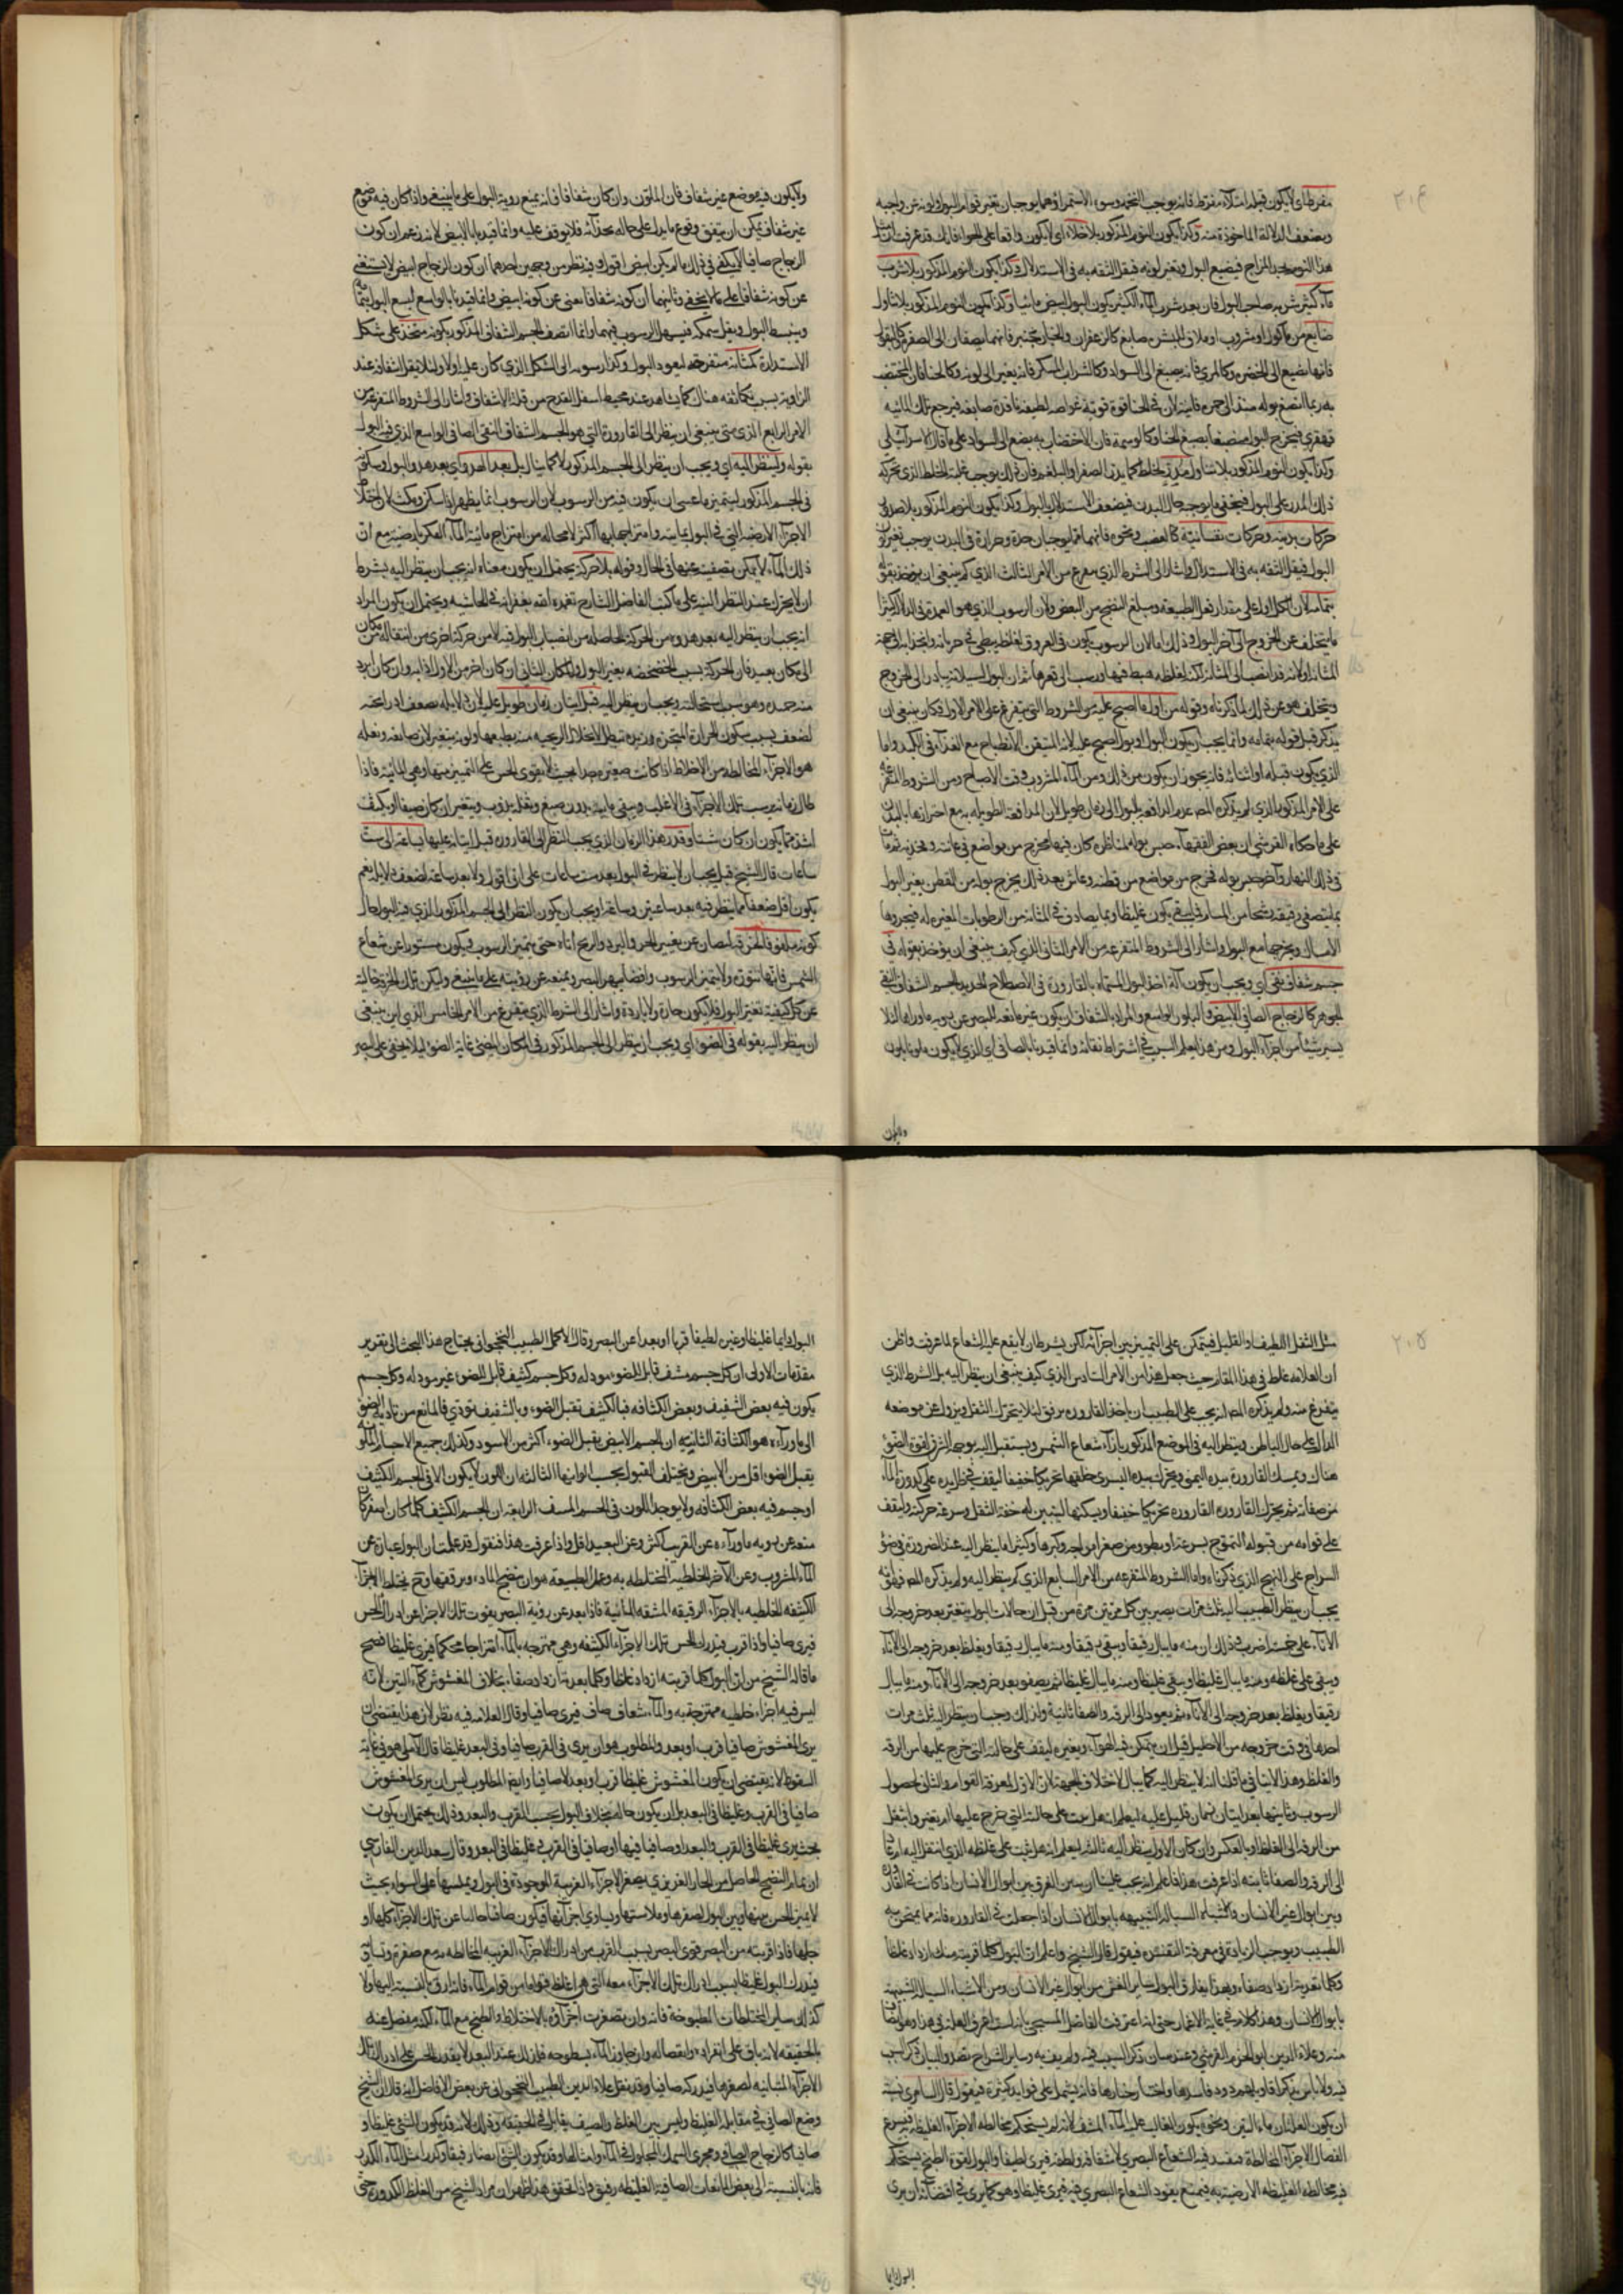 ٢٠٤
مفرطا اى لا يكون قبله امتلاء مفرط فانه يوجب التخمه وسوء الاستمراء وهما يوجبان تغير قوام البول ولونه عن واجبه
ويضعف الدلالة الماخوذة منه وكذا يكون النوم المذكور بلا خلاء اى لا يكون واقعا على الخواء فانك قد عرفت ان
هذا النوم المزاج فيصبغ البول ويتغير لونه فيقل الثقه به فى الاستدلال وكذا يكون النوم المذكور بلا شرب
ماء كثير شربه صاحب البول فان بعد شرب الماء الكثير يكون البول ابيض مائيا وكذا يكون النوم المذكور بلا تناول
صابغ من ماكول او مشروب او ملاق للبشره صابغ كالزعفران والخيار شنبر فانهما يصبغان الى الصفرة وكالبقول
فانها تصبغ الى الخضرة وكالمرى فانه يصبغ الى السواد وكالشراب المسكر فانه يغير الى لونه وكالحناء فان المختضب
به ربما انصبغ بوله منه الى حمره قانية لان فى الحنا قوة قوية غواصه لطيفه نافذة صابغه فيرجع تلك المائيه
قهقرى فيخرج البول منصبغا بصبغ الحنا وكالوسمة فان الاختضاب به يصبغ الى السواد على ما قال الاسرائيلى
وكذا يكون النوم المذكور بلا تناول مدر لخلط كما يدر الصفراء او البلغم فان ذلك يوجب غلبة الخلط الذى يخرجه
ذلك المدر على البول فيخفى ما يوجبه حال البدن فيضعف الاستدلال بالبول وكذا يكون النوم المذكور بلا صدور
حركات بدنيه وحركات نفسانية كالغضب ونحوه فانهما مما يوجبان حدة وحرارة فى البدن يوجب تغير لون
البول فيقل الثقه به فى الاستدلال واشار الى الشرط الذى يتفرع من الامر الثالث الذى كم ينبغى ان يؤخذ بقوله
بتمامه لان الكل ادل على مقدار فعل الطبيعة ومبلغ النضج من البعض ولان الرسوب الذى هو العمدة فى الدلالة كثيرا
ما يتخلف عن الخروج الى آخر البول وذلك اما لان الرسوب يكون فى العروق لغلظه بطئ فى جريانه وانجذابه الى جهة
المثانة او لانه قد انصب الى المثانة لكنه لغلظه هبط فيها ورسب الى قعرها ثم ان البول لسيلانه يبادر الى الخروج
ويتخلف هو عن ذلك لما ذكرناه وقوله من اول ما اصبح عليه من الشروط التى يتفرع على الامر الاول فكان ينبغى ان
يذكر قبل قوله بتمامه وانما يجب ان يكون البول اول بول اصبح عليه لانه المتيقن الانطباخ مع الغذاء فى الكبد واما
الذى يكون قبله او اثنائه فانه يجوز ان يكون من ذلك ومن الماء المشروب وقت الاصباح ومن الشروط المتفرعة
على الامر المذكور الذى لم يذكره المص عدم المدافعه بالبول الى زمان طويل لان المدافعة الطويله به مع اضرارها بالبدن
على ما حكاه القرشى ان بعض الفقهاء حبس بوله لمناظره كان فيها فخرج من مواضع فى عانته وفخذيه ثم مات
فى ذلك النهار وآخر حبس بوله فخرج من مواضع من قطنه وعاش بعد ذلك يخرج بوله من القطن يغير البول
بما يتصفى رقيقه رشحا من المسام فما يبقى يكون غليظا وبما يصادف فى المثانة من الرطوبات المغيره له فيجردها
الامساك ويخرجها مع البول واشار الى الشروط المتفرعه من الامر الثانى الذى كيف ينبغى ان يؤخذ بقوله فى
جسم شفاف نقى اى ويجب ان يكون آلة اخذ البول المسماة بالقارورة فى الاصطلاح الجديد الجسم الشفاف النقى
الجوهر كالزجاج الصافى الابيض والبلور الواسع والمراد بالشفاف ان يكون غير مانعه للبصر عن رويه ماوراها لئلا
يستر شيئا من اجزاء البول ومن هذا يعلم السبب فى اشتراط نقائه وانما قيدنا بالصافى اى الذى لا يكون ملونا بلون
ولايكون
ولا يكون فيه موضع غير شفاف فان الملون وان كان شفافا فانه يمنع روية البول على ما ينبغى واذا كان فيه موضع
غير شفاف يمكن ان يتفق وقوع ما يدل على حاله بحذائه فلا يوقف عليه وانما قيد بالابيض لانه زعم ان كون
الزجاج صافيا لا يكفى فى ذلك ما لم يكن ابيض اقول وفيه نظر من وجهين احدهما ان كون الزجاج ابيض لا يستغنى
عن كونه شفافا على ما لا يخفى وثانيهما ان كونه شفافا يغنى عن كونه ابيض وانما قيدنا بالواسع ليسع البول بتمامه
وينبسط البول ويقل سمكه فيسهل الرسوب فيهما وانما اتصف الجسم الشفاف المذكور بكونه متخذ على شكل
الاستدارة كمثانه منفرجه ليعود البول وكذا رسوبه الى الشكل الذى كان عليه اولا ولئلا يقل الشفافه عند
الزاوية بسبب تكاثفه هناك كما يشاهد عند محيط اسفل القدح من قلة الاشفاف واشار الى الشروط المتفرعه من
الامر الرابع الذى متى ينبغى ان ينظر الى القارورة التى هو الجسم الشفاف النقى الصافى الواسع الذى فيه البول
بقوله ولينظر اليه اى ويجب ان ينظر الى الجسم المذكور لا كما يبال بل بعد الهدو اى بعد هدو البول وسكونه
فى الجسم المذكور ليتميز ما عسى ان يكون فيه من الرسوب لان الرسوب انما يظهر اذا سكن ومكث لان اختلاط
الاجزاء الارضية التى فى البول بمائيته وامتزاجها بها اكثر لا محاله من امتزاج مائية الماء العكر بارضيته مع ان
ذلك الماء لا يمكن تصفيته عنها فى الحال وقوله بلا حركة يحتمل ان يكون معناه انه يجب ان ينظر اليه بشرط
ان لا يحرك عند النظر اليه على ما كتب الفاضل الشارح تغمده الله بغفرانه فى الحاشيه ويحتمل ان يكون المراد
انه يجب ان ينظر اليه بعد هدوه من الحركة الحاصله من انصباب البول فيه لا من حركة اخرى من انتقاله من مكان
الى مكان بعيد فان الحركة بسبب الخضخضه يغير البول والمكان الثانى ان كان احر من الاول اذابه وان كان ابرد
منه جمده وهو سبب استحالته ويجب ان ينظر اليه قبل اتيان زمان طويل عليه لان دلايله يضعف اذ رايحته
لضعف بسبب سكون الحرارة المبخره وزبده يبطل لانحلال الريحيه منه بطبعها ولونه يتغير لان صابغه وثفله
هو الاجزاء المخالطه من الاخلاط اذا كانت صغيره جدا بحيث لا يقوى الحس على التمييز بينها وبين المائيه فاذا
طال زمانه يرسب تلك الاجزاء فى الاغلب ويبقى مائيته بدون صبغ وثفله يذوب ويتغير ان كان صيفا او يكثف
اشد مما يكون ان كان شتاء وقدر هذا الزمان الذى يجب النظر الى القاروره قبل اتيانه عليها بساعة الى ست
ساعات قال الشيخ قيل يجب ان لا ينظر فى البول بعد ست ساعات على انى اقول ولا بعد ساعة لضعف دلايله نعم
يكون اقل ضعفا مما ينظر فيه بعد ساعتين وساعة او يجب ان يكون النظر الى الجسم المذكور الذى فيه البول حال
كونه ملفوفا بالخرقه ليصان عن تغيير الحر والبرد والريح اياه حتى يتميز الرسوب ويكون مستورا عن شعاع
الشمس فانها تثوره ولا يتميز الرسوب وايضا يبهر البصر ويمنعه عن رؤيته على ما ينبغى وليكن تلك الخرقه خالية
عن كل كيفية تغير البول فلا يكون حارة ولا باردة واشار الى الشرط الذى يتفرع من الامر الخامس الذى اين ينبغى
ان ينظر اليه بقوله فى الضوء اى ويجب ان ينظر الى الجسم المذكور فى المكان المضئ غاية الضوء ليلا يخفى على البصر
٢٠٥
مثل الثفل اللطيف او القليل فيتمكن على التمييز بين اجزائه لكن بشرط ان لا يقع عليه الشعاع لما عرفت واظن
ان العلامه غلط فى هذا المقام حيث جعل هذا من الامر السادس الذى كيف ينبغى ان ينظر اليه بل الشرط الذى
يتفرع منه ولم يذكره المص انه يجب على الطبيب ان ياخذ القاروره برفق لئلا يتحرك الثفل ويزول عن موضعه
الدال على حال الباطن وينظر اليه فى الموضع المذكور بازاء شعاع الشمس ويستقبل اليه بوجهه الشرق لقوة الضوء
هناك ويمسك القارورة بيده اليمنى ويحرك بيده اليسرى خلفها تحريكا خفيفا ليقف فى ظل يده على كدورة الماء
من صفائه ثم يحرك القارورة تحريكا خفيفا ويسكنها ليتبين له خفة الثفل وسرعة حركته وليقف
على قوامه من قبوله التموج بسرعة او بطء ومن صغر امواجه وكبرها وكثيرا ما ينظر اليه عند الضرورة فى ضوء
السراج على النهج الذى ذكرناه واما الشروط المتفرعه من الامر السابع الذى كم ينظر اليه ولم يذكره المص فهو انه
يجب ان ينظر الطبيب اليه ثلث مرات يصير بين كل مرتين مرة من قبل ان حالات البول يتغير بعد خروجه الى
الاناء على خمسة اضرب وذلك ان منه ما يبال رقيقا ويبقى رقيقا ومنه ما يبال رقيقا ويغلظ بعد خروجه الى الاناء
ويبقى على غلظه ومنه ما يبال غليظا ويبقى غليظا ومنه ما يبال غليظا ثم يصفو بعد خروجه الى الاناء ومنه ما يبال
رقيقا ويغلظ بعد خروجه الى الاناء ثم يعود الى الرقه والصفاء ثانية ولذلك وجب ان ينظر اليه ثلث مرات
احدها فى وقت خروجه من الاحليل قبل ان يتمكن فيه الهواء ويغيره ليقف على حالته التى خرج عليها من الرقه
والغلظ وهذا لا ينافى ما قلنا انه لا ينظر اليه كما يبال لاختلاف الجهة لان الاول لمعرفة القوام والثانى لحصول
الرسوب وثانيتها بعد اتيان زمان قليل عليه ليعلم انه هل ثبت على حالته التى خرج عليها ام تغير وانتقل
من الرقه الى الغلظ او بالعكس وان كان الاول ينظر اليه ثالثه ليعلم انه هل ثبت على غلظه الذى انتقل اليه ام عاد
الى الرقه والصفا ثانية اذا عرفت هذا فاعلم انه يجب علينا ان نبين الفرق بين ابوال الانسان اذا كانت فى القارورة
وبين ابوال غير الانسان والاشياء السيالة الشبيهه بابوال الانسان اذا جعلت فى القاروره فانه مما يمتحن به
الطبيب ويوجب الزيادة فى معرفة التفتيش فيقول قال الشيخ واعلم ان البول كلما قربته منك ازداد غلظا
وكلما بعدته ازداد صفاء وبهذا يفارق البول ساير الغش من ابوال غير الانسان ومن الاشياء السيالة الشبيهة
بابوال الانسان وهذا كلام فى غاية الاغماض حتى انه اعترف الفاضل المسيحى بانه لست اعرف العلة فى هذا وهو ايضا
منه وعلاء الدين ابو الحزم القرشى وعد ببيان ذكر السبب فيه ولم يف به وساير الشراح تصدوا لبيان ذكر السبب
فيه ولا باس بذكر اقاويلهم ورد فاسدها واختيار مختارها فانه يشمل على فوايد كثيرة فيقول قال السامرى يشبه
ان يكون العله ان ماء التين ونحوه يكون الغالب عليه الماء المشف لانه لم يستحكم مخالطه الاجزاء الغليظه به فيسرع
انفصال الاجزاء المخالطة فينفذ فيه الشعاع البصرى لاشفافه ولطفه فيرى لطيفا والبول لقوة الطبخ يستحكم
فيه مخالطه الغليظه الارضية به فيمتنع نفوذ الشعاع البصرى فيه فيرى غليظا وهو كما يرى فى اقتضائه ان يرى
البول دايما
البول دايما غليظا وغيره لطيفا قربا او بعدا عن البصر وقال الاكمل الطبيب النخجوانى يحتاج هذا البحث الى تقرير
مقدمات الاولى ان كل جسم مشف قابل للضوء مود له وكل جسم كثيف قابل للضوء غير مود له وكل جسم
يكون فيه بعض الشفيف وبعض الكثافه فبالكثيف تقبل الضوء وبالشفيف تودى فالمانع من تاديه الضوء
الى ماوراءه هو الكثافة الثانيه ان الجسم الابيض يقبل الضوء اكثر من الاسود وكذلك جميع الاجسام الملونه
يقبل الضوء اقل من الابيض ويختلف القبول بحسب الوانها الثالثه ان اللون لا يكون الا فى الجسم الكثيف
او جسم فيه بعض الكثافه ولا يوجد اللون فى الجسم المشف الرابعه ان الجسم الكثيف كلما كان اصغر كان
منعه عن رويه ماوراءه عن القريب اكثر وعن البعيد اقل واذا عرفت هذا فنقول قد علمت ان البول عبارة عن
الماء المشروب وعن الاجزاء الخلطيه المختلطه به وعمل الطبيعة هو ان ينضج الماده ويرققها وح يختلط الاجزاء
الكثيفه الخلطيه بالاجزاء الرقيقه المشفه المائية فاذا بعد عن روية البصر يفوت تلك الاجزا عن ادراك الحس
فيرى صافيا واذا قرب فيدرك الحس تلك الاجزاء الكثيفه وهى ممتزجه بالماء امتزاجا محكما فيرى غليظا فصح
ما قاله الشيخ من ان البول كلما قربته ازداد غلظا وكلما بعدته ازداد صفاء بخلاف المغشوش كماء التين لانه
ليس فيه اجزاء خلطيه ممتزجة به والماء شفاف صاف فيرى صافيا وقال العلامه فيه نظر لان هذا يقتضى ان
يرى المغشوش صافيا قرب او بعد والمطلوب هو ان يرى فى القرب صافيا وفى البعد غليظا قال الآملى هو فى غاية
السقوط لانه يقتضى ان يكون المغشوش غليظا قرب او بعد لا صافيا وايضا المطلوب ليس ان يرى المغشوش
صافيا فى القرب وغليظا فى البعد بل ان يكون حاله بخلاف البول بحسب القرب والبعد وذلك يحتمل ان يكون
بحيث يرى غليظا فى القرب والبعد او صافيا فيهما او صافيا فى القرب غليظا فى البعد وقال سعد الدين الفارسى
ان تمام النضج الحاصل من الحار الغريزى يصغر الاجزاء الغريبة الموجودة فى البول ويملسها على السواء بحيث
لا يميز الحس بينها وبين البول لصغرها وملاستها وتساوى اجزائها فيكون صافيا خاليا عن تلك الاجزاء كلها او
جلها فاذا قربته من البصر قوى البصر بسبب القرب من ادراك الاجزاء الغريبه المخالطه به مع صغره وتساوى
فيدرك البول غليظا بسبب ادراك تلك الاجزاء معه التى هى اغلظ قواما من قوام الماء فانه ارق بالنسبة اليها ولا
كذلك ساير المختلطات المطبوخة فانه وان تصغرت اجزاؤه بالاختلاط والطبخ مع الماء لكنه منفصل عنه
بالحقيقه لانه باق على انفراده وانفصاله وان جاور الماء بسطوحه فلذلك عند البعد لا يقدر الحس على ادراك تلك
الاجزاء المتباينه لصغرها فيدركه صافيا وقد نقل علاء الدين الطبيب النخجوانى عن بعض الافاضل انه قال ان الشيخ
وضع الصافى فى مقابله الغليظ وليس بين الغلظ والصفا تقابل فى الحقيقه وذلك لانه قد يكون الشئ غليظا و
صافيا كالزجاج الصافى ومجرى السمك المحلول فى الماء وامثالها وقد يكون الشئ ايضا رقيقا وكدرا مثل الماء الكدر
فانه بالنسبة الى بعض المايعات الصافية الغليظه رقيق واذا تحقق هذا ظهر ان مراد الشيخ من الغلظ الكدورة حتى